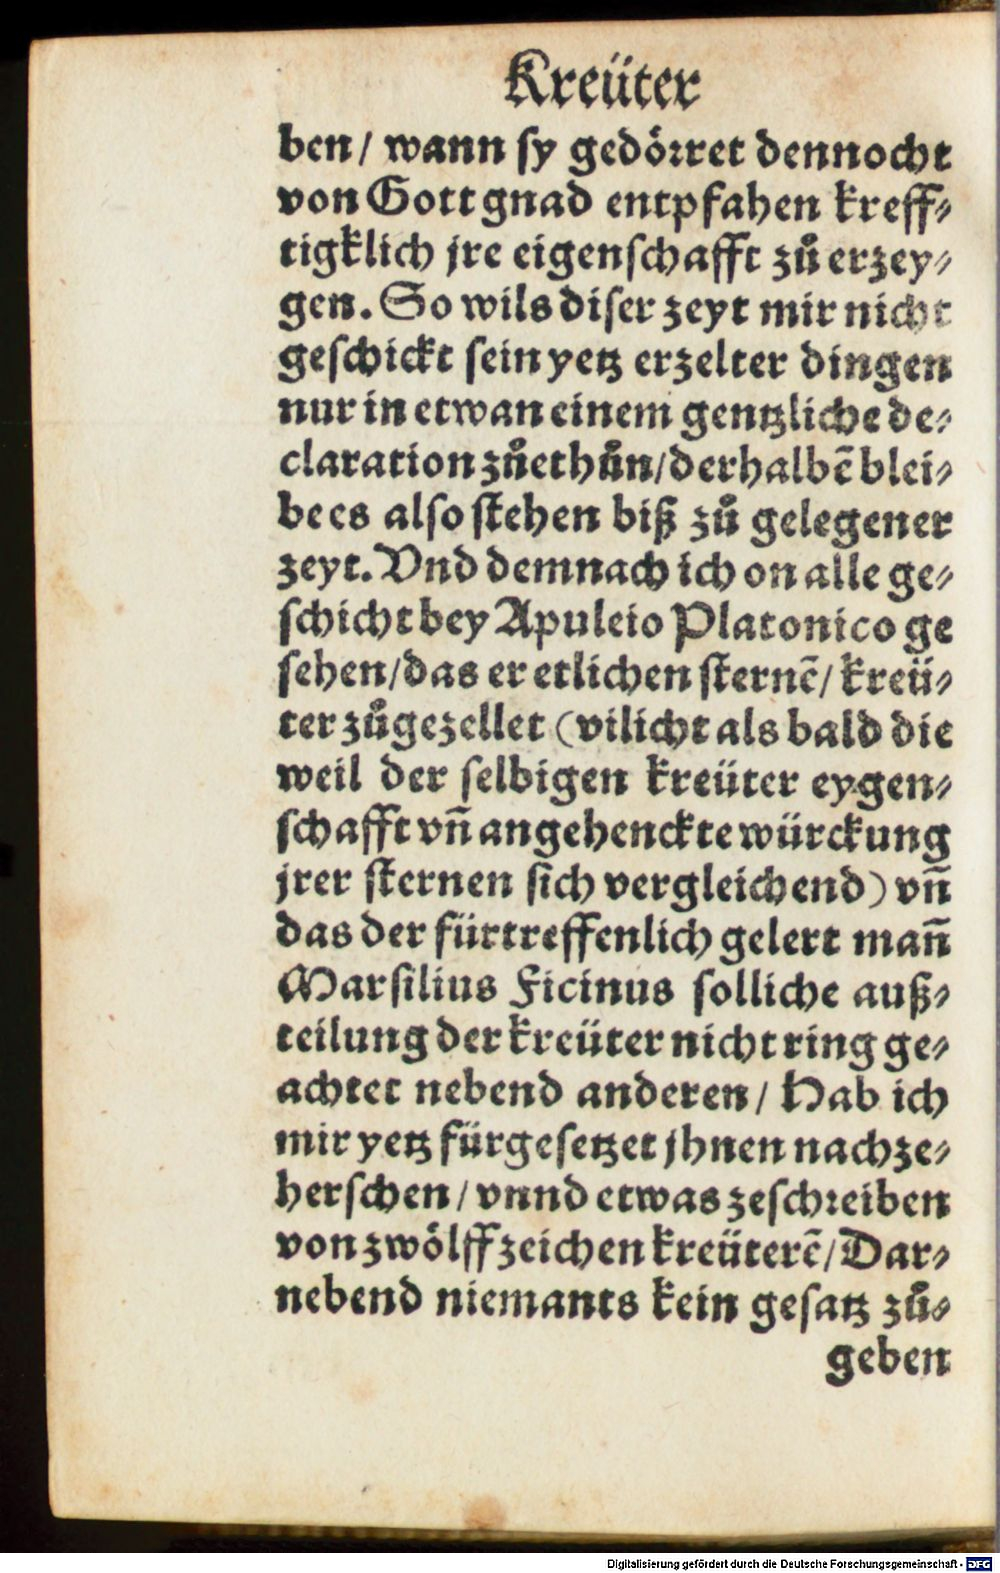 Kreüter
ben/ wann sy gedörret dennocht
von Gott gnad entpfahen kreff⸗
tigklich jre eigenschafft zů erzey⸗
gen. So wils diser zeyt mir nicht
geschickt sein yetz erzelter dingen
nur in etwan einem gentzliche de⸗
claration zůethůn/ derhalbẽ blei⸗
be es also stehen biß zů gelegener
zeyt. Vnd demnach ich on alle ge⸗
schicht bey Apuleio Platonico ge
sehen/ das er etlichen sternẽ/ kreü⸗
ter zůgezellet (vilicht als bald die
weil der selbigen kreüter eygen⸗
schafft vñ angehenckte würckung
jrer sternen sich vergleichend) vñ
das der fürtreffenlich gelert mañ
Marsilius Ficinus solliche auß⸗
teilung der kreüter nicht ring ge⸗
achtet nebend anderen/ Hab ich
mir yetz fürgesetzet jhnen nachze⸗
herschen/ vnnd etwas zeschreiben
von zwölff zeichen kreüterẽ/ Dar⸗
nebend niemants kein gesatz zů⸗
geben
Digitalisierung gefördert durch die Deutsche Forschungsgemeinschaft - DFG